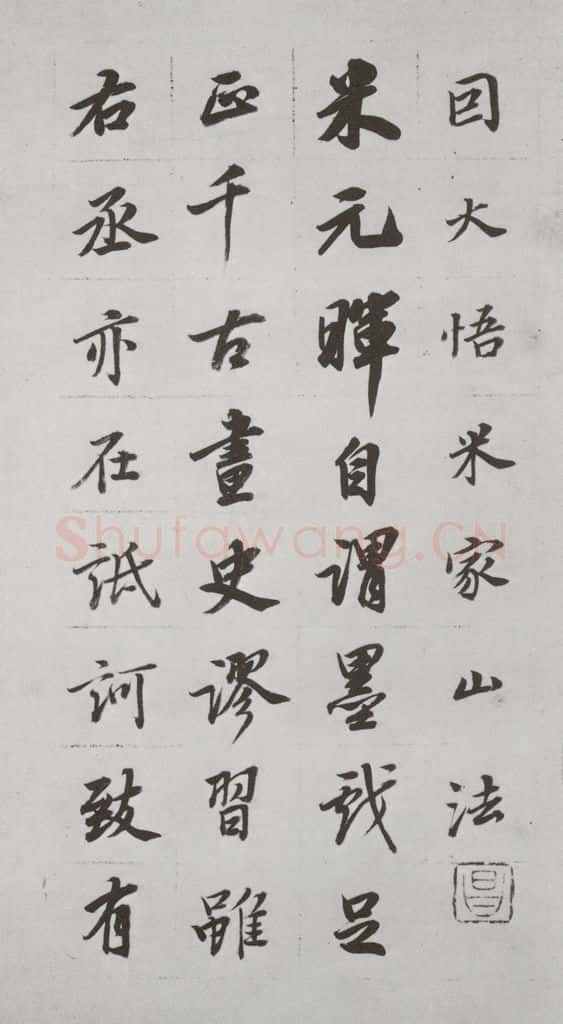 囙大悟米家山法
米元暉自謂墨戲足
正千古畫史謬習雖
右丞亦在詆訶致有
昌
Shufawang.CN